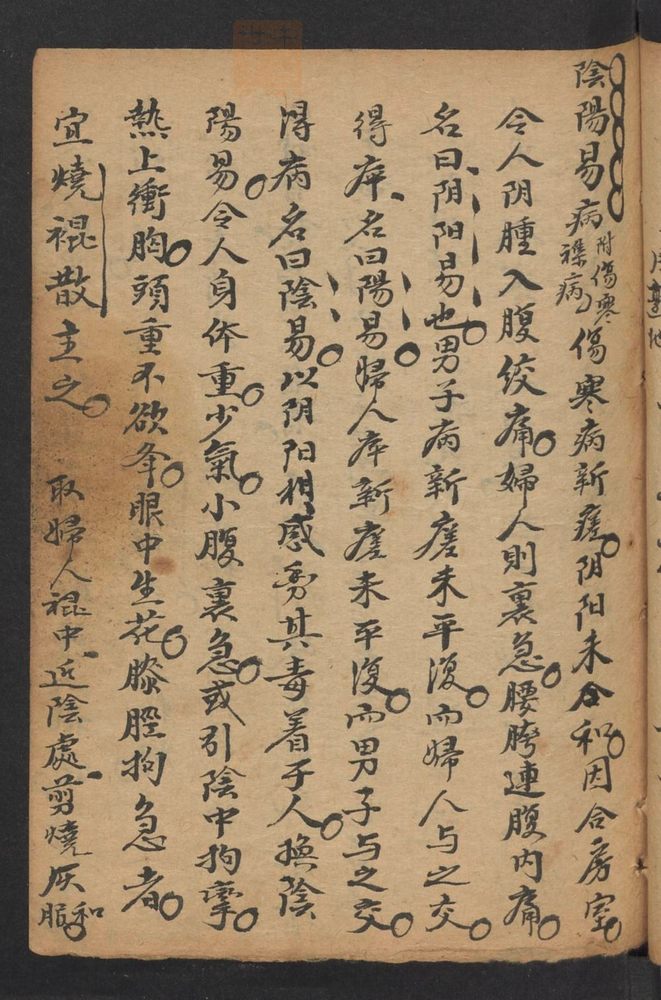 陰陽易病附傷寒襍病傷寒病新瘥阴阳未合和因合房室
令人阴腫入腹绞痛婦人則裏急腰胯連腹内痛
名曰阴阳易也男子病新瘥未平復而婦人与之交
得病名曰陽易婦人病新瘥未平復而男子与之交
得病名曰陰易以阴阳相感動其毒着于人換陰
陽易令人身体重少氣小腹裏急或引陰中拘挛
熱上衝胸頭重不欲举眼中生花膝脛拘急者
宜燒裩散主之 取婦人裩中近陰處剪燒灰和服